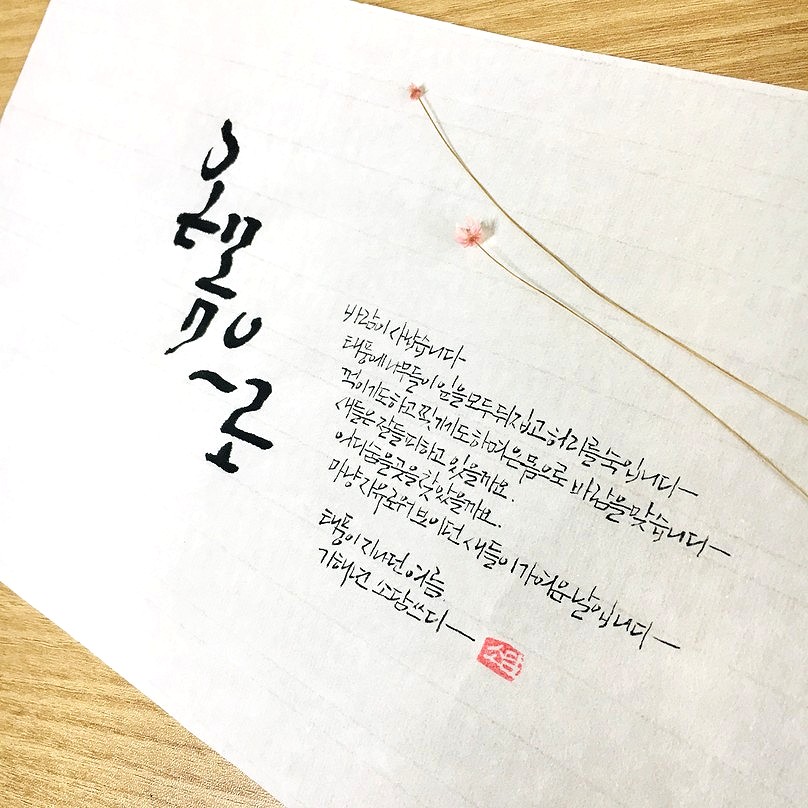 바람이 사납습니다
태풍에 나무들이 잎을 모두 뒤집고 허리를 숙입니다
꺾이기도하고 찢기기도하며 온몸으로 바람을 맞습니다
새들은 잘들 피하고 있을까요.
어디 숨을곳을 찾았을까요.
마냥 자유로워 보이던 새들이 가여운 날입니다
태풍이 지나던 여름.
기해년 소담쓰다
소담